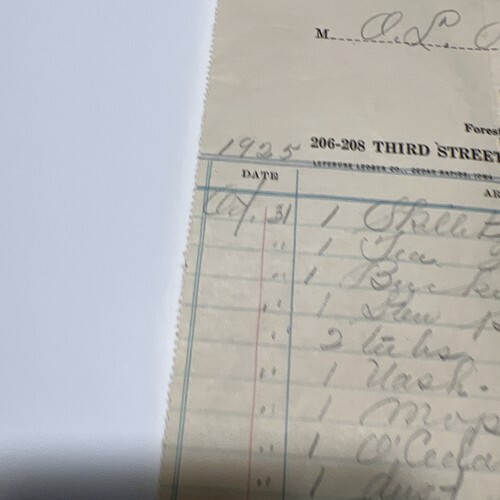 M. O. L.
Fores
1925 206-208 THIRD STREET
LEFEBURE LEDGER CO., CEDAR RAPIDS, IOWA
DATE AR
Oct. 31 1 Skillet
" 1 Tea
" 1 Bucke
" 1 Stew p
" 2 tubs
" 1 Wash.
" 1 Mop
" 1 O'Ceda
" 1 dust